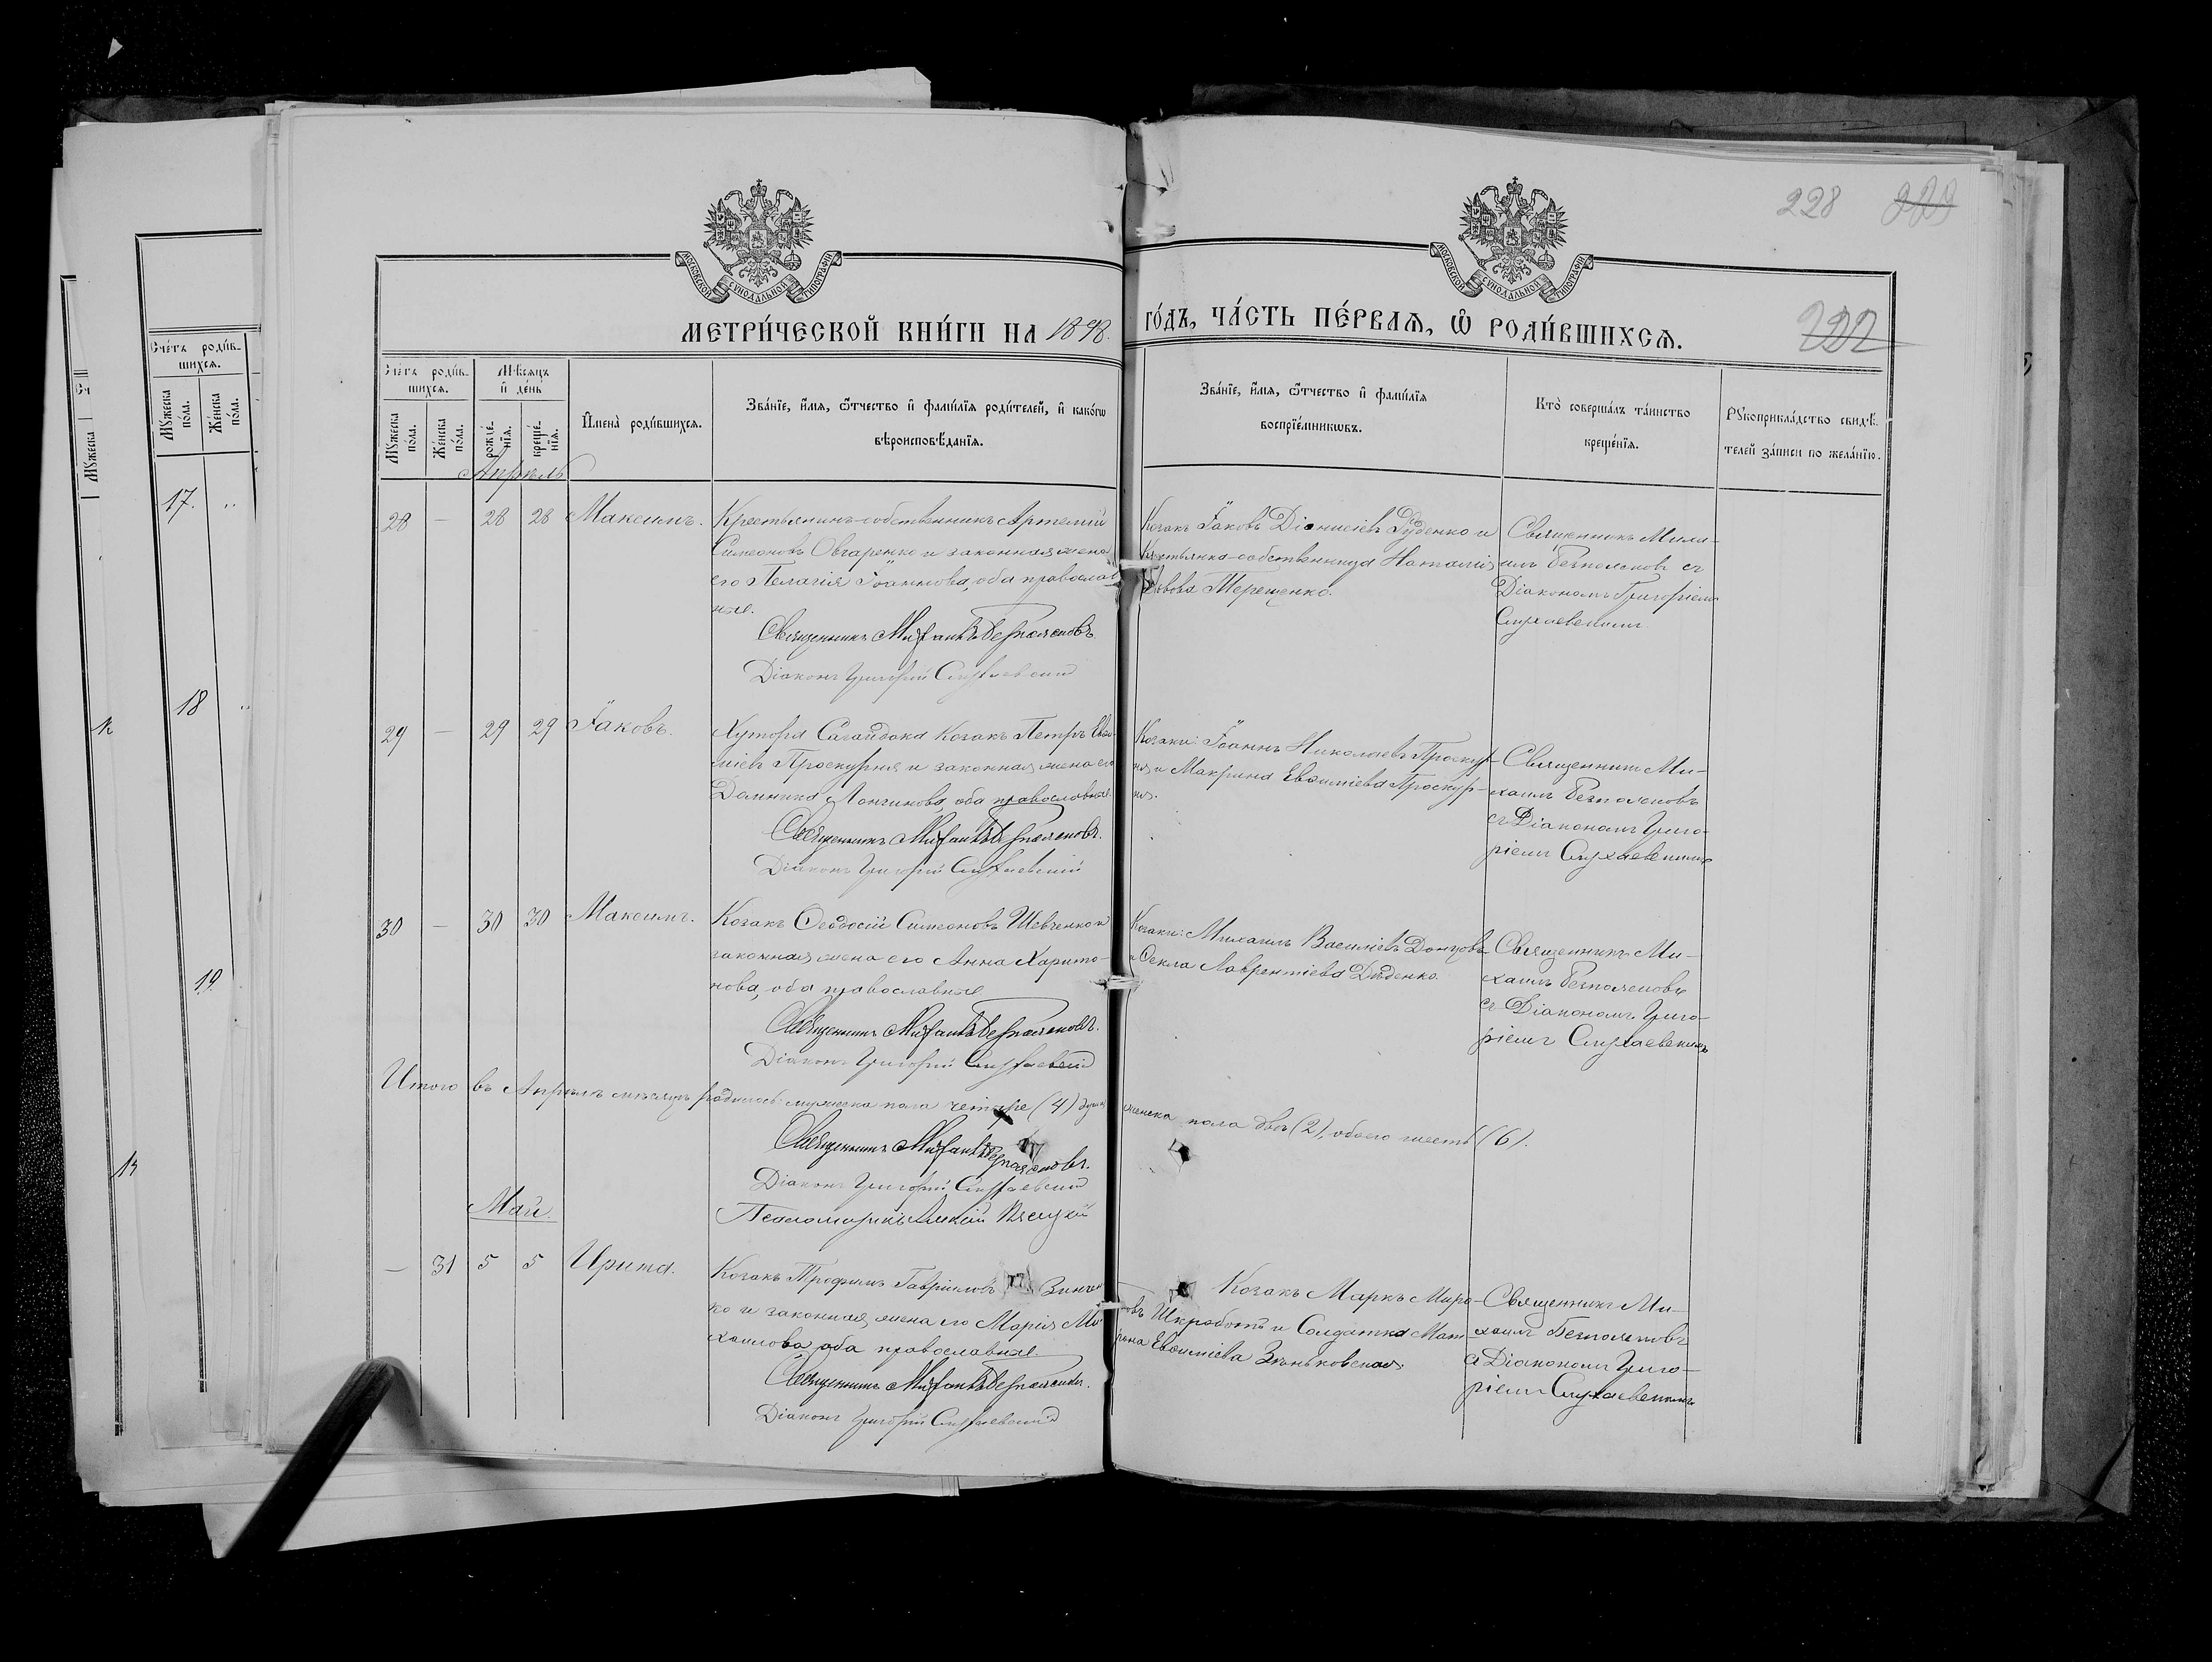 228 229
222
МОСКОВСКОЙ СѴНОДАЛЬНОЙ ТИПОГРАФІИ
МОСКОВСКОЙ СѴНОДАЛЬНОЙ ТИПОГРАФІИ
МЕТРИ́ЧЕСКОЙ КНИ́ГИ НА 1898. ГО́ДЪ, ЧА́СТЬ ПЕ́РВАѦ, Ѽ РОДИ́ВШИХСѦ.
Счётъ роди́в-
шихсѧ.
Мѹ́жеска по́ла.
Же́нска по́ла.
Мѣ́сѧцъ и҆ де́нь
рожде́-нїѧ.
креще́-нїѧ.
И҆мена̀ роди́вшихсѧ.
Зва́нїе, и҆́мѧ, ѻ҆́тчество и҆ фами́лїѧ роди́телей, и҆ како́гѡ
вѣроисповѣ́данїѧ.
Зва́нїе, и҆́мѧ, ѻ҆́тчество и҆ фами́лїѧ
воспрїе́мникѡвъ.
Кто̀ соверша́лъ та́инство
креще́нїѧ.
Рѹкоприкла́дство свидѣ́-
телей за́писи по жела́нїю.
Апрѣль
28 — 28 28 Максимъ.
Крестьянинъ-собственникъ Артемій
Симеоновъ Овчаренко и законная жена
его Пелагія Іоаннова, оба православ
ные.
Священникъ Михаилъ Безпаленовъ
Діаконъ Григорій Слухаевскій
Козакъ Іаковъ Діонисіевъ Руденко и
Крестьянка-собственница Наталія
Львова Терещенко.
Священникъ Миха-
илъ Безпаленовъ съ
Діакономъ Григоріемъ
Слухаевскимъ.
29 — 29 29 Іаковъ.
Хутора Сагайдака Козакъ Петръ Евѳи-
міевъ Проскурня и законная жена его
Домника Лонгинова, оба православные.
Священникъ Михаилъ Безпаленовъ.
Діаконъ Григорій Слухаевскій
Козаки: Іоаннъ Николаевъ Проскур-
ня и Макрина Евѳиміева Проскур-
ня.
Священникъ Ми-
хаилъ Безпаленовъ
съ Діакономъ Григо-
ріемъ Слухаевскимъ
30 — 30 30 Максимъ.
Козакъ Ѳеодосій Симеоновъ Шевченко и
законная жена его Анна Харито-
нова, оба православные
Священникъ Михаилъ Безпаленовъ.
Діаконъ Григорій Слухаевскій
Козаки: Михаилъ Василіевъ Донцовъ
и Ѳекла Лаврентіева Дяденко.
Священникъ Ми-
хаилъ Безпаленовъ
съ Діакономъ Григо-
ріемъ Слухаевскимъ
Итого въ Апрѣлѣ мѣсяцѣ родилось: мужеска пола четыре (4) души женска пола двѣ (2), обоего шесть (6).
Священникъ Михаилъ Безпаленовъ.
Діаконъ Григорій Слухаевскій
Псаломщикъ
Май.
— 31 5 5 Ирина.
Козакъ Трофимъ Гавріиловъ Зинчен
ко и законная жена его Марія Ми-
хаилова, оба православные.
Священникъ Михаилъ Безпаленовъ.
Діаконъ Григорій Слухаевскій
Козакъ Маркъ Миро-
новъ Шкработъ и Солдатка Мат-
рена Евѳиміева Зѣньковская.
Священникъ Ми-
хаилъ Безпаленовъ
съ Діакономъ Григо-
ріемъ Слухаевскимъ
Счётъ роди́в-
шихсѧ.
Мѹ́жеска по́ла.
Же́нска по́ла.
17.
18
19
Мѹ́жеска